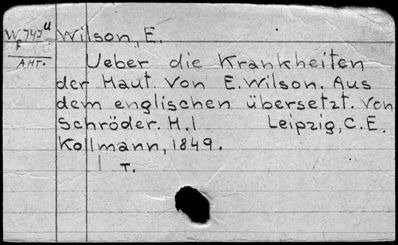 W 747 u Wilson, E.
F
АНТ. Ueber die Krankheiten
der Haut. Von E. Wilson. Aus
dem englischen übersetzt. Von
Schröder. H.I Leipzig, C.E.
Kollmann, 1849.
T.